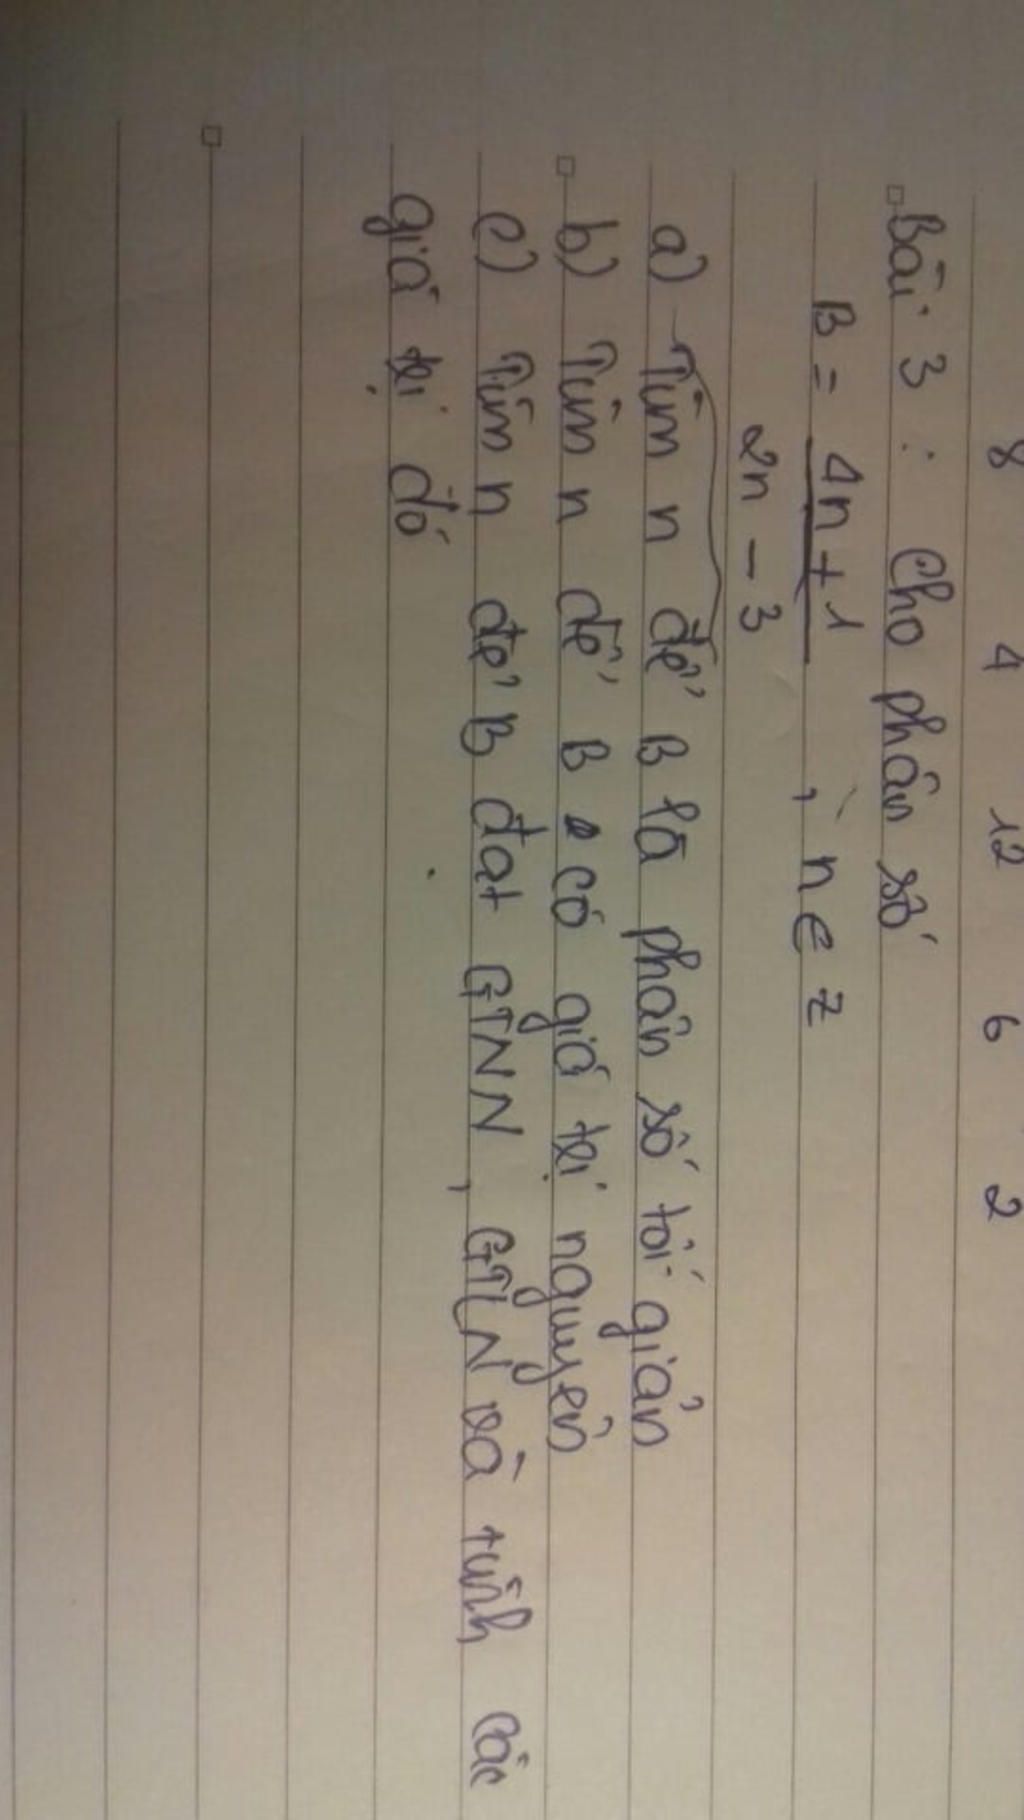 8 4 12 6 2
Bài 3 : Cho phân số
B = 4n + 1 , n ∈ Z
2n - 3
a) Tìm n để B là phân số tối giản
b) Tìm n để B có giá trị nguyên
c) Tìm n để B đạt GTNN, GTLN và tính các
giá trị đó